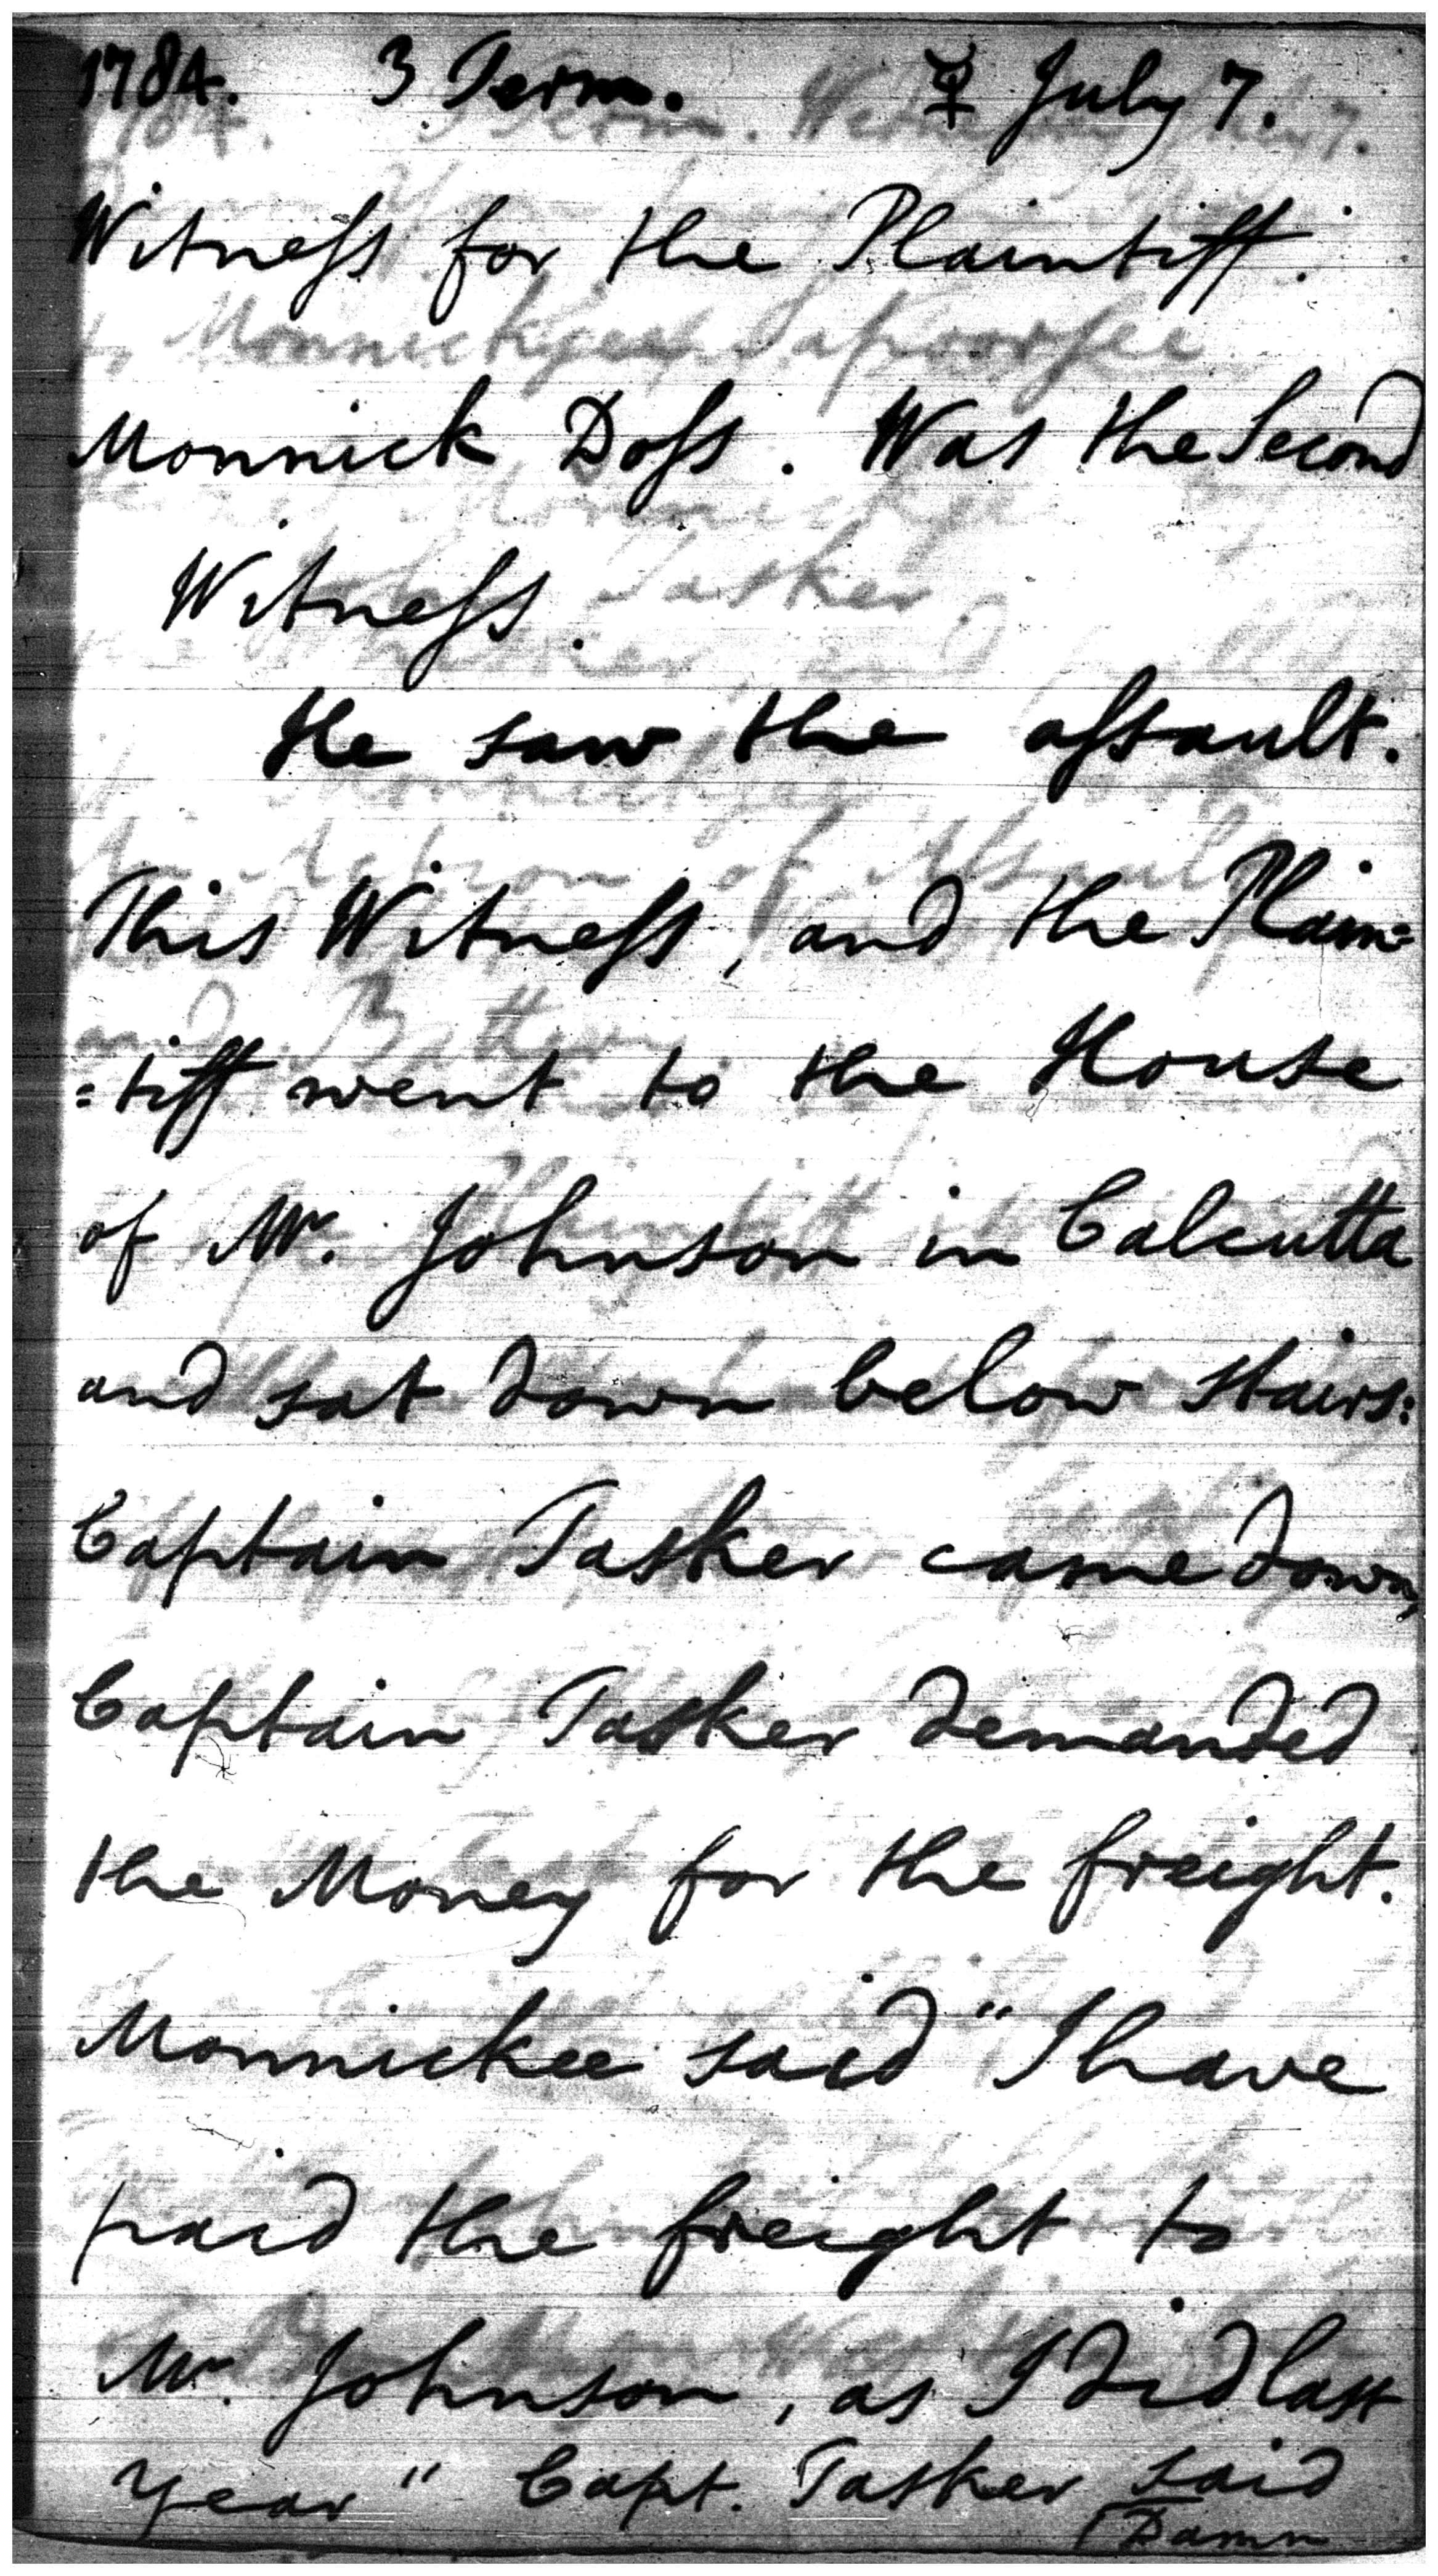 1784. 3 Term. ☿ July 7.
Witneſs for the Plaintiff.
Monnick Doſs. Was the Second
Witneſs.
He saw the aſsault.
This Witneſs, and the Plain=
=tiff went to the House
of Mr. Johnson in Calcutta
and sat down below stairs:
Captain Tasker came down,
Captain Tasker demanded
the Money for the freight.
Monnickee said "I have
paid the freight to
Mr. Johnson, as I did last
year" Capt. Tasker said
Damn